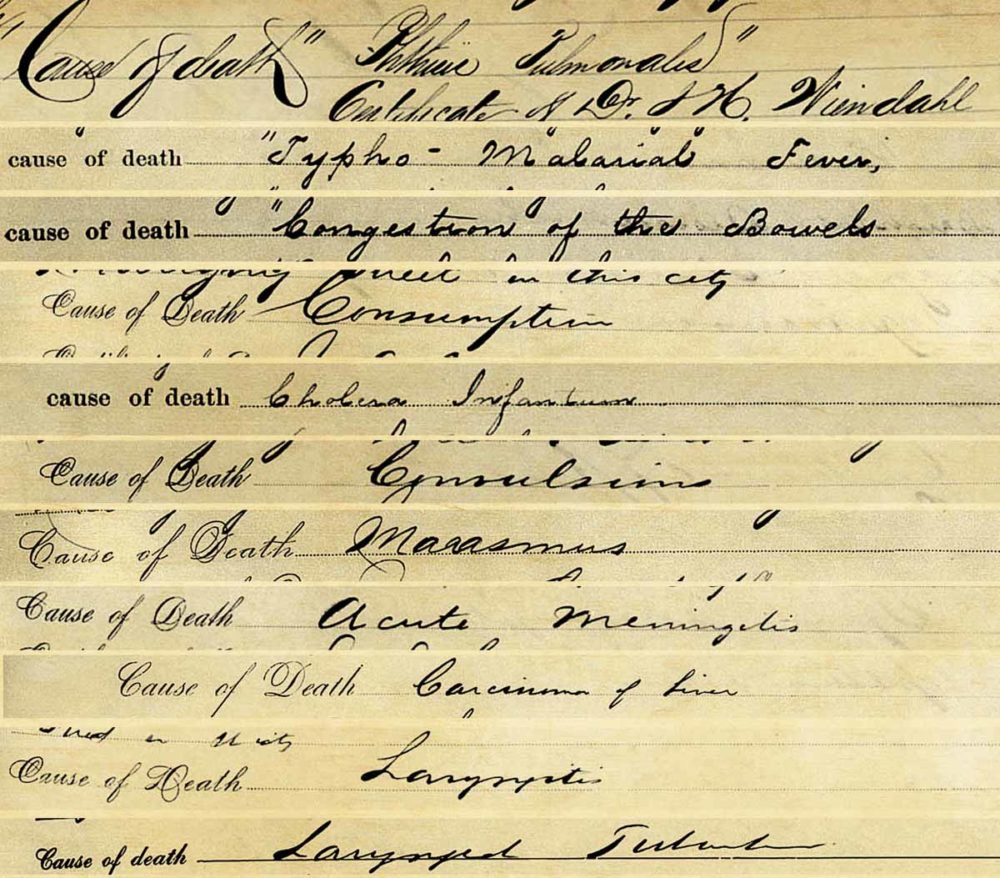 Cause of death" Phthisis Pulmonales"
Certificate of Dr. J. H. Wiendahl
cause of death "Typho-Malarial Fever,
cause of death "Congestion of the Bowels
Street in this city
Cause of Death Consumption
cause of death Cholera Infantum
Cause of Death Convulsions
Cause of Death Marasmus
Cause of Death Acute Meningitis
Cause of Death Carcinoma of Liver
Cause of Death Laryngitis
Cause of death Laryngeal